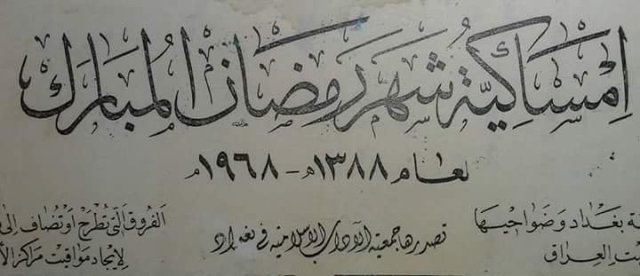 امساكية شهر رمضان المبارك
لعام ١٣٨٨هـ - ١٩٦٨م
ة بغداد وضواحيها
ت العراق
تصدرها جمعية الآداب الاسلامية في بغداد
الفروق التي تطرح او تضاف الى
لإيجاد مواقيت مراكز الأ